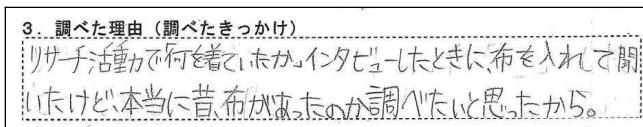 3. 調べた理由（調べたきっかけ）
リサーチ活動で何を着ていたか、インタビューしたときに、布を入れて聞
いたけど、本当に昔、布があったのか調べたいと思ったから。